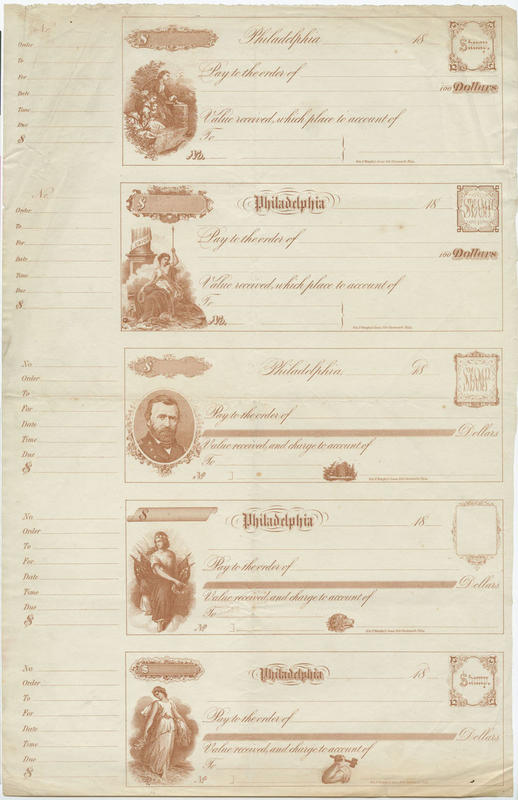 No.
Order
To
For
Date
Time
Due
$
$
Philadelphia 18
Stamp
Pay to the order of
100 Dollars
Value received, which place to account of
To
No.
No.
Order
To
For
Date
Time
Due
$
$
Philadelphia 18
STAMP
Pay to the order of
100 Dollars
Value received, which place to account of
To
No.
No
Order
To
For
Date
Time
Due
$
$
Philadelphia, 18
STAMP
Pay to the order of
Dollars
Value received, and charge to account of
To
No
No
Order
To
For
Date
Time
Due
$
$
Philadelphia 18
Pay to the order of
Dollars
Value received, and charge to account of
To
No
No
Order
To
For
Date
Time
Due
$
$
Philadelphia 18
Pay to the order of
Dollars
Value received, and charge to account of
To
No